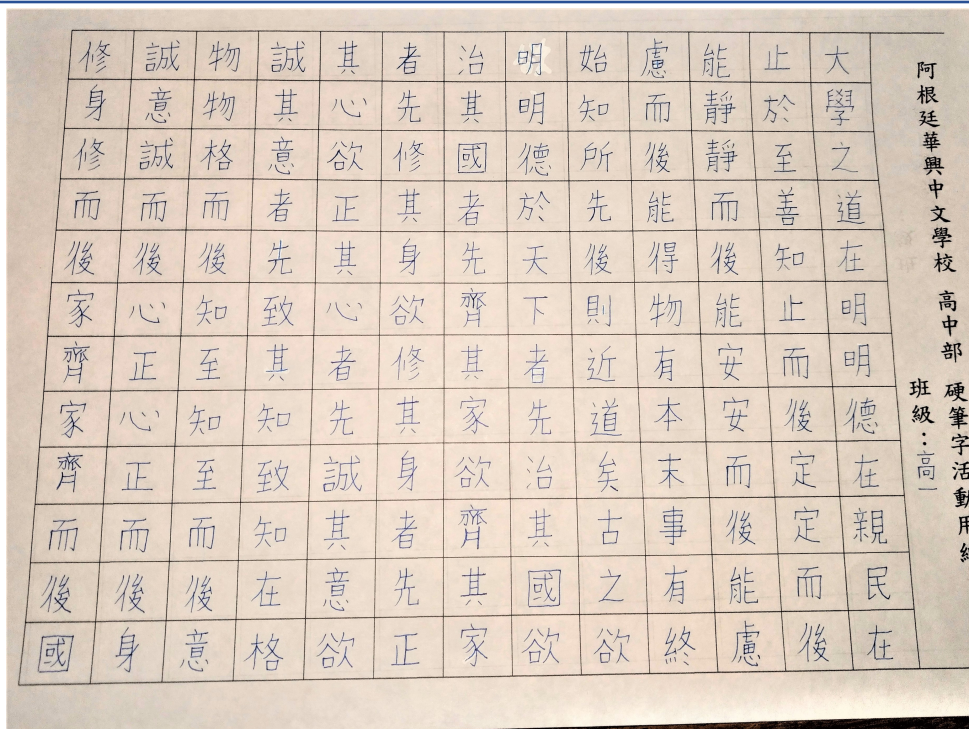 阿根廷華興中文學校 高中部 硬筆字活動用紙
班級：高一
大學之道在明明德在親民在
止於至善知止而後定定而後
能靜靜而後能安安而後能慮
慮而後能得物有本末事有終
始知所先後則近道矣古之欲
明明德於天下者先治其國欲
治其國者先齊其家欲齊其家
者先修其身欲修其身者先正
其心欲正其心者先誠其意欲
誠其意者先致其知致知在格
物物格而後知至知至而後意
誠意誠而後心正心正而後身
修身修而後家齊家齊而後國